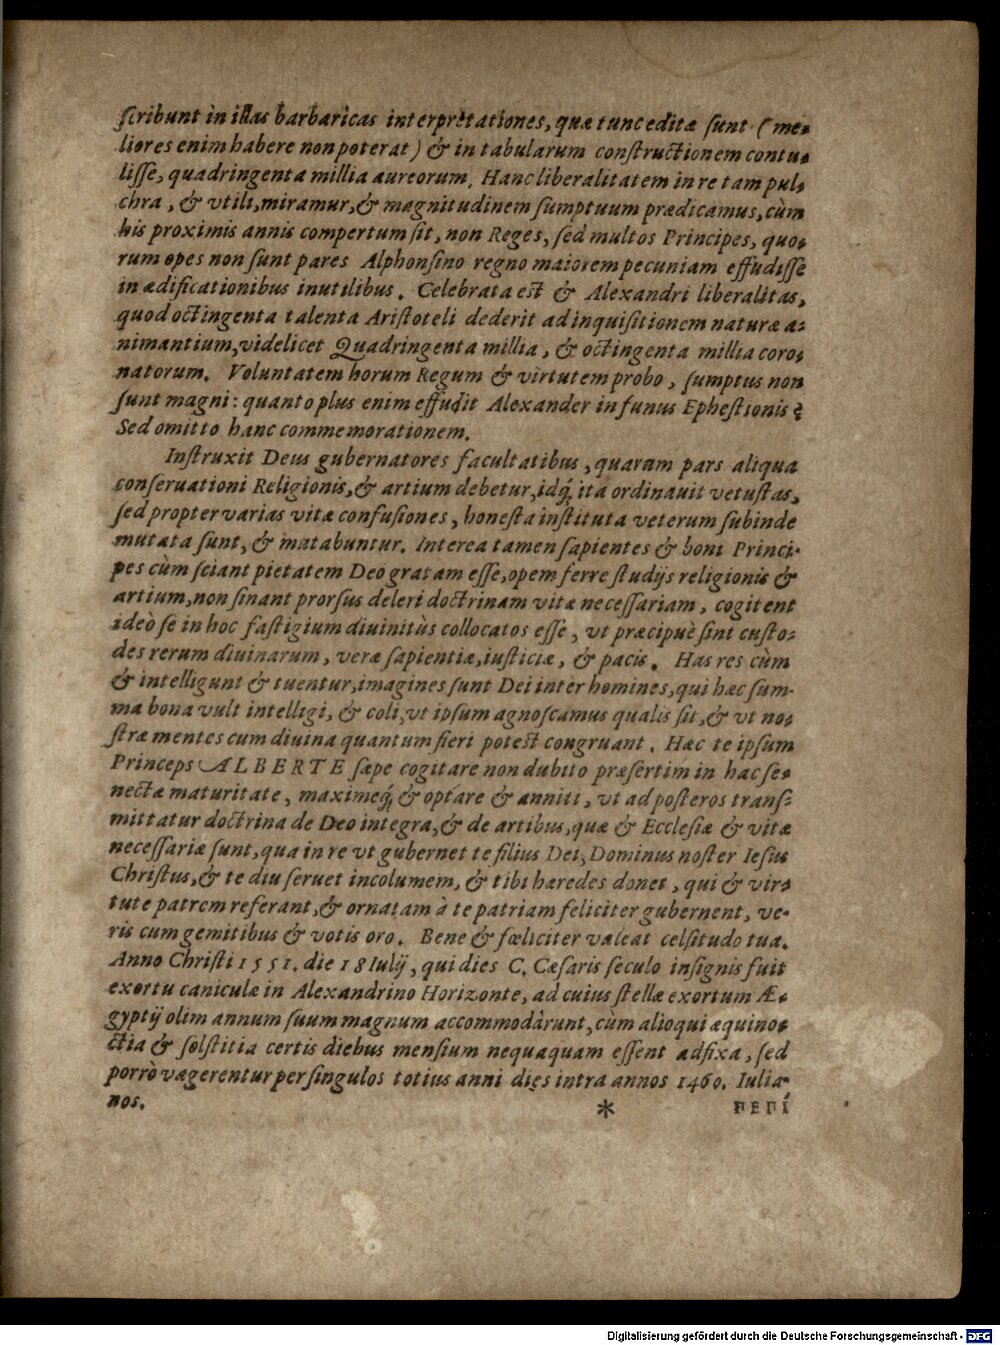 ſcribunt in illas barbaricas interpretationes, quæ tunc editæ ſunt (me-
liores enim habere non poterat) & in tabularum conſtructionem contu-
liſſe, quadringenta millia aureorum. Hanc liberalitatem in re tam pul-
chra, & vtili, miramur, & magnitudinem ſumptuum prædicamus, cùm
his proximis annis compertum ſit, non Reges, ſed multos Principes, quo-
rum opes non ſunt pares Alphonſino regno maiorem pecuniam effudiſſe
in ædificationibus inutilibus. Celebrata eſt & Alexandri liberalitas,
quod octingenta talenta Ariſtoteli dederit ad inquiſitionem naturæ a-
nimantium, videlicet Quadringenta millia, & octingenta millia coro-
natorum. Voluntatem horum Regum & virtutem probo, ſumptus non
ſunt magni: quanto plus enim effudit Alexander in funus Epheſtionis?
Sed omitto hanc commemorationem.
Inſtruxit Deus gubernatores facultatibus, quarum pars aliqua
conſeruationi Religionis, & artium debetur, idq́; ita ordinauit vetuſtas,
ſed propter varias vitæ confuſiones, honeſta inſtituta veterum ſubinde
mutata ſunt, & mutabuntur. Interea tamen ſapientes & boni Princi-
pes cùm ſciant pietatem Deo gratam eſſe, opem ferre ſtudijs religionis &
artium, non ſinant prorſus deleri doctrinam vitæ neceſſariam, cogitent
ideò ſe in hoc faſtigium diuinitùs collocatos eſſe, vt præcipuè ſint cuſto-
des rerum diuinarum, veræ ſapientiæ, iuſticiæ, & pacis. Has res cùm
& intelligunt & tuentur, imagines ſunt Dei inter homines, qui hæc ſum-
ma bona vult intelligi, & coli, vt ipſum agnoſcamus qualis ſit, & vt no-
ſtræ mentes cum diuina quantum fieri poteſt congruant. Hæc te ipſum
Princeps ALBERTE ſæpe cogitare non dubito præſertim in hac ſe-
nectæ maturitate, maximeq́; & optare & anniti, vt ad poſteros tranſ-
mittatur doctrina de Deo integra, & de artibus, quæ & Eccleſiæ & vitæ
neceſſariæ ſunt, qua in re vt gubernet te filius Dei, Dominus noſter Ieſus
Chriſtus, & te diu ſeruet incolumem, & tibi hæredes donet, qui & vir-
tute patrem referant, & ornatam à te patriam feliciter gubernent, ve-
ris cum gemitibus & votis oro. Bene & fœliciter valeat celſitudo tua.
Anno Chriſti 1551. die 18 Iulij, qui dies C. Cæſaris ſeculo inſignis fuit
exortu caniculæ in Alexandrino Horizonte, ad cuius ſtellæ exortum Æ-
gyptij olim annum ſuum magnum accommodàrunt, cùm alioqui æquino-
ctia & ſolſtitia certis diebus menſium nequaquam eſſent adfixa, ſed
porrò vagerentur per ſingulos totius anni dies intra annos 1460. Iulia-
nos.
* ΠΕΡΊ
Digitalisierung gefördert durch die Deutsche Forschungsgemeinschaft - DFG